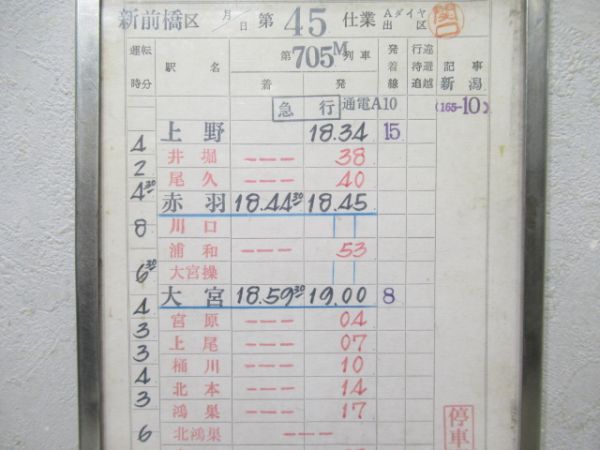 新前橋区 月 / 日 第 45 仕業 Aダイヤ 出区 関口
運転時分 駅名 第705M列車 着 発 発着線 行違 待避 追越 記事 新潟
急行 通電A10 (165-10)
上野 18.34 15
4
井堀 --- 38
2
尾久 --- 40
4 30
赤羽 18.44 30 18.45
川口
8
浦和 --- 53
大宮操
6 30
大宮 18.59 30 19.00 8
4
宮原 --- 04
3
上尾 --- 07
3
桶川 --- 10
4
北本 --- 14
3
鴻巣 --- 17
6
北鴻巣 ---
停車